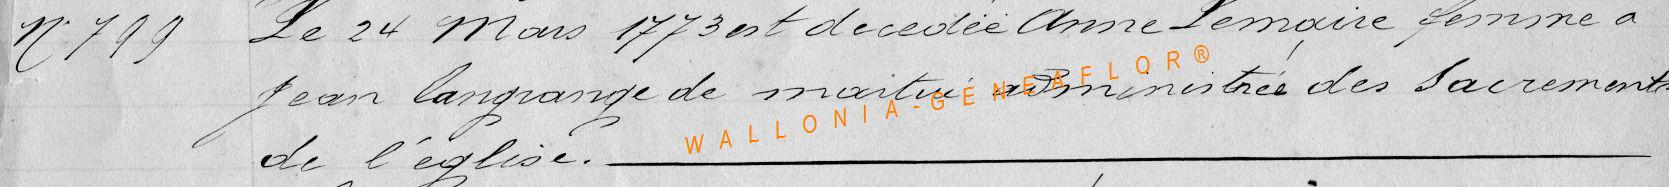 N° 799 Le 24 Mars 1773 est decedéé Anne Lemaire femme a
Jean langrange de martué administréé des Sacrements
de l'église.
WALLONIA-GÉNÉAFLOR®